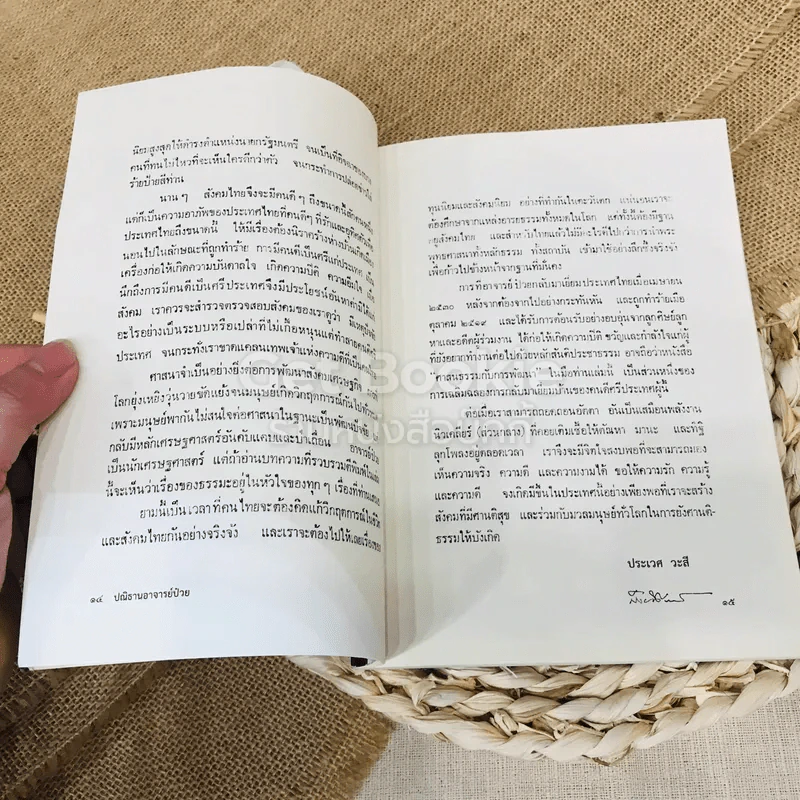 นิยมสูงสุดให้ดำรงตำแหน่งนายกรัฐมนตรี จนเป็นที่อิจฉาของ
คนที่ทนไม่ไหวที่จะเห็นใครดีกว่าตัว จนกระทำการปล่อยข่าวใส่
ร้ายป้ายสีท่าน
นาน ๆ สังคมไทยจึงจะมีคนดี ๆ ถึงขนาดนี้สักคนหนึ่ง
แต่ก็เป็นความอาภัพของประเทศไทยที่คนดีๆ ที่รักและอุทิศตัวเพื่อ
ประเทศไทยถึงขนาดนี้ ให้มีเรื่องต้องนิราศร้างห่างบ้านเกิดเมือง
นอนไปในลักษณะที่ถูกทำร้าย การมีคนดีเป็นศรีแก่ประเทศ เป็น
เครื่องก่อให้เกิดความบันดาลใจ เกิดความปีติ ความอิ่มใจ เมื่อ
นึกถึงการมีคนดีเป็นศรีประเทศจึงมีประโยชน์อันหาค่ามิได้ต่อ
สังคม เราควรจะสำรวจตรวจสอบสังคมของเราดูว่า มีเหตุปัจจัย
อะไรอย่างเป็นระบบหรือเปล่าที่ไม่เกื้อหนุนแต่ทำลายคนดีของ
ประเทศ จนกระทั่งเราขาดแคลนเทพเจ้าแห่งความดีที่เป็น
ศาสนาจำเป็นอย่างยิ่งต่อการพัฒนาสังคมเศรษฐกิจ
โลกยุ่งเหยิงวุ่นวายขัดแย้งจนมนุษย์เกิดวิกฤตการณ์กันไปทั่ว
เพราะมนุษย์พากันไม่สนใจต่อศาสนาในฐานะเป็นพัฒนปัจจัย
กลับมีหลักเศรษฐศาสตร์อันคับแคบและป่าเถื่อน อาจารย์ป๋วย
เป็นนักเศรษฐศาสตร์ แต่ถ้าอ่านบทความที่รวบรวมตีพิมพ์ในเล่ม
นี้จะเห็นว่าเรื่องของธรรมะอยู่ในหัวใจของทุกๆ เรื่องที่ท่าน
ยามนี้เป็นเวลาที่คนไทยจะต้องคิดแก้วิกฤตการณ์ในชีวิต
และสังคมไทยกันอย่างจริงจัง และเราจะต้องไปให้เลยเรื่องของ
๑๔ ปณิธานอาจารย์ป๋วย
ทุนนิยมและสังคมนิยม อย่างที่ทำกันในตะวันตก แน่นอนเราจะ
ต้องศึกษาจากแหล่งอารยธรรมทั้งหมดในโลก แต่ทั้งนี้ต้องมีฐาน
อยู่สังคมไทย และสำหรับไทยแล้วไม่มีอะไรดีไปกว่าการนำพระ
พุทธศาสนาทั้งหลักธรรม ทั้งสถาบัน เข้ามาใช้อย่างลึกซึ้งจริงจัง
เพื่อก้าวไปข้างหน้าจากฐานที่มั่นคง
การที่อาจารย์ป๋วยกลับมาเยี่ยมประเทศไทยเมื่อเมษายน
๒๕๓๐ หลังจากต้องจากไปอย่างกระทันหัน และถูกทำร้ายเมื่อ
ตุลาคม ๒๕๑๙ และได้รับการต้อนรับอย่างอบอุ่นจากลูกศิษย์ลูก
หาและอดีตผู้ร่วมงาน ได้ก่อให้เกิดความปีติ ขวัญและกำลังใจแก่ผู้
ที่ยังอยากทำงานต่อไปด้วยหลักสันติประชาธรรม อาจถือว่าหนังสือ
"ศาสนธรรมกับการพัฒนา" ในมือท่านเล่มนี้ เป็นส่วนหนึ่งของ
การเฉลิมฉลองการกลับมาเยี่ยมบ้านของคนดีศรีประเทศผู้นี้
ต่อเมื่อเราสามารถถอดถอนอัตตา อันเป็นเสมือนพลังงาน
นิวเคลียร์ (ส่วนกลาง) ที่คอยเติมเชื้อให้ตัณหา มานะ และทิฐิ
ลุกโพลงอยู่ตลอดเวลา เราจึงจะมีจิตใจสงบพอที่จะสามารถมอง
เห็นความจริง ความดี และความงามได้ ขอให้ความรัก ความรู้
และความดี จงเกิดมีขึ้นในประเทศนี้อย่างเพียงพอที่เราจะสร้าง
สังคมที่มีศานติสุข และร่วมกับมวลมนุษย์ทั่วโลกในการยังศานติ-
ธรรมให้บังเกิด
ประเวศ วะสี
๑๕
Get Bookie
ร้านหนังสือมือถือ